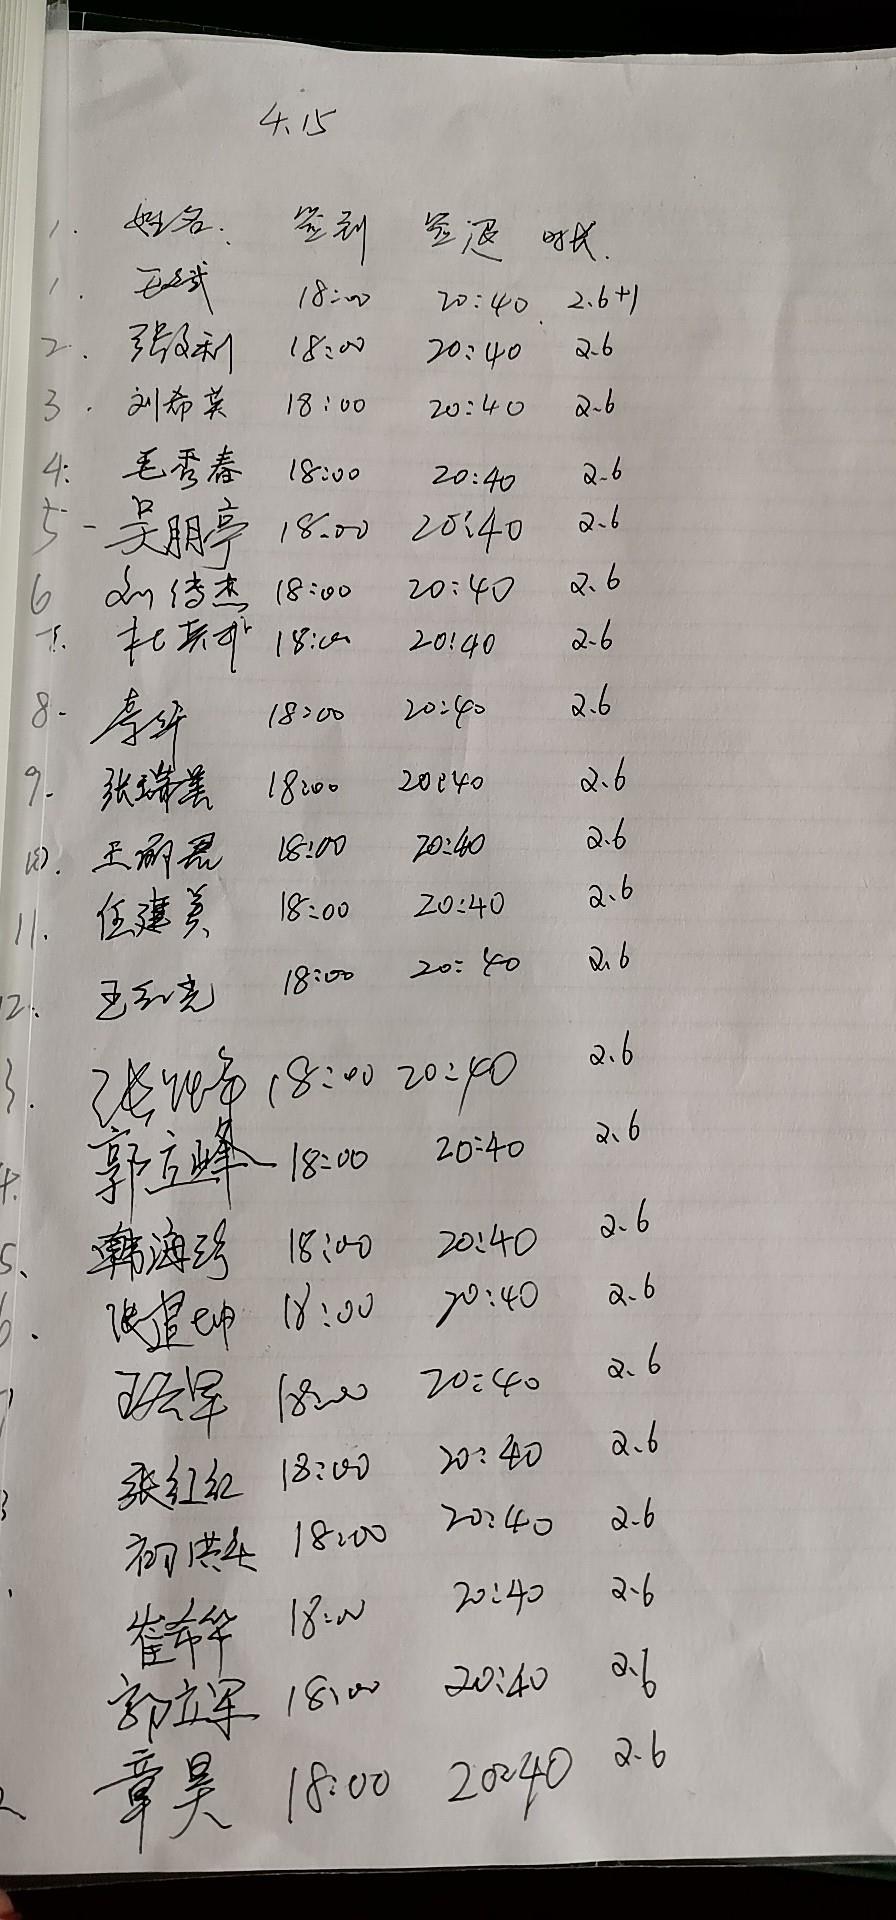 4.15
1. 姓名. 签到 签退 时长.
1. 18:00 20:40. 2.6+1
2. 张文利 18:00 20:40 2.6
3. 刘希英 18:00 20:40 2.6
4. 毛秀春 18:00 20:40 2.6
5- 吴朋亭 18:00 20:40 2.6
6 刘传杰 18:00 20:40 2.6
7. 18:00 20:40 2.6
8- 李华 18:00 20:40 2.6
9. 张瑞美 18:00 20:40 2.6
10. 王丽君 18:00 20:40 2.6
11. 任建美 18:00 20:40 2.6
2. 王红光 18:00 20:40 2.6
3. 张 18:00 20:40 2.6
4. 郭立峰 18:00 20:40 2.6
5、 韩海珍 18:00 20:40 2.6
6. 张建坤 18:00 20:40 2.6
18:00 20:40 2.6
张红红 18:00 20:40 2.6
18:00 20:40 2.6
崔希华 18:00 20:40 2.6
郭立军 18:00 20:40 2.6
章昊 18:00 20:40 2.6